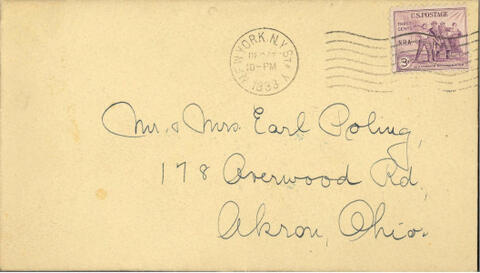 NEW YORK, N.Y. STA. Y
10-PM
1933
U.S. POSTAGE
THREE CENTS
NRA
3¢
Mr. & Mrs. Earl Poling,
178 Overwood Rd.,
Akron, Ohio.